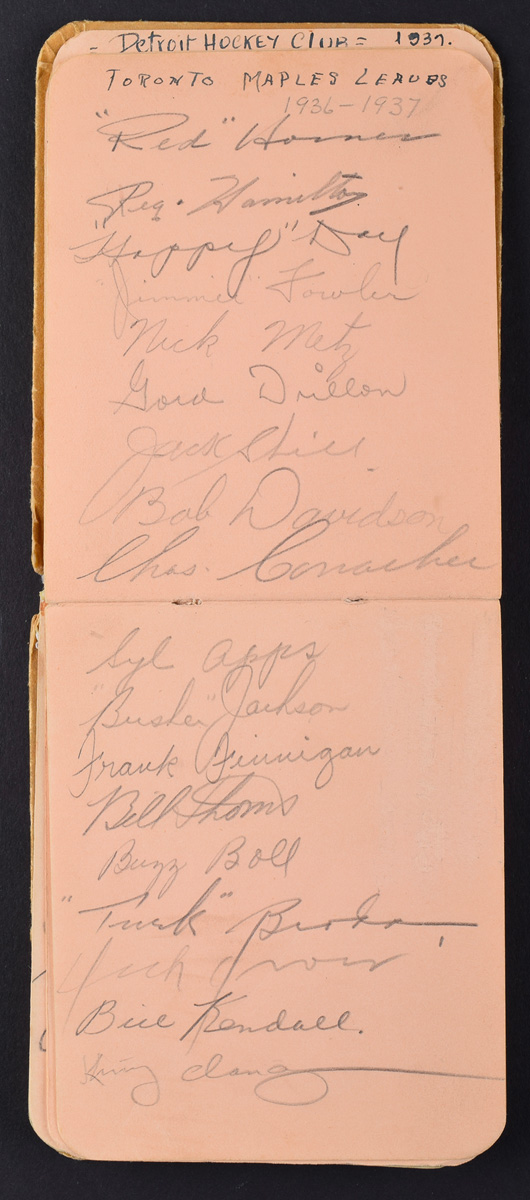 - Detroit HOCKEY CLUB = 1937.
TORONTO MAPLES LEAVES
1936-1937
"Red" Horner
Reg. Hamilton
"Happy" Day
"Jimmie" Fowler
Nick Metz
Gord Drillon
Jack Shill
Bob Davidson
Chas. Conacher
Syl Apps
"Busher" Jackson
Frank Finnigan
Bill Thoms
Buzz Boll
"Turk" Broda
Bill Kendall.
King Clancy